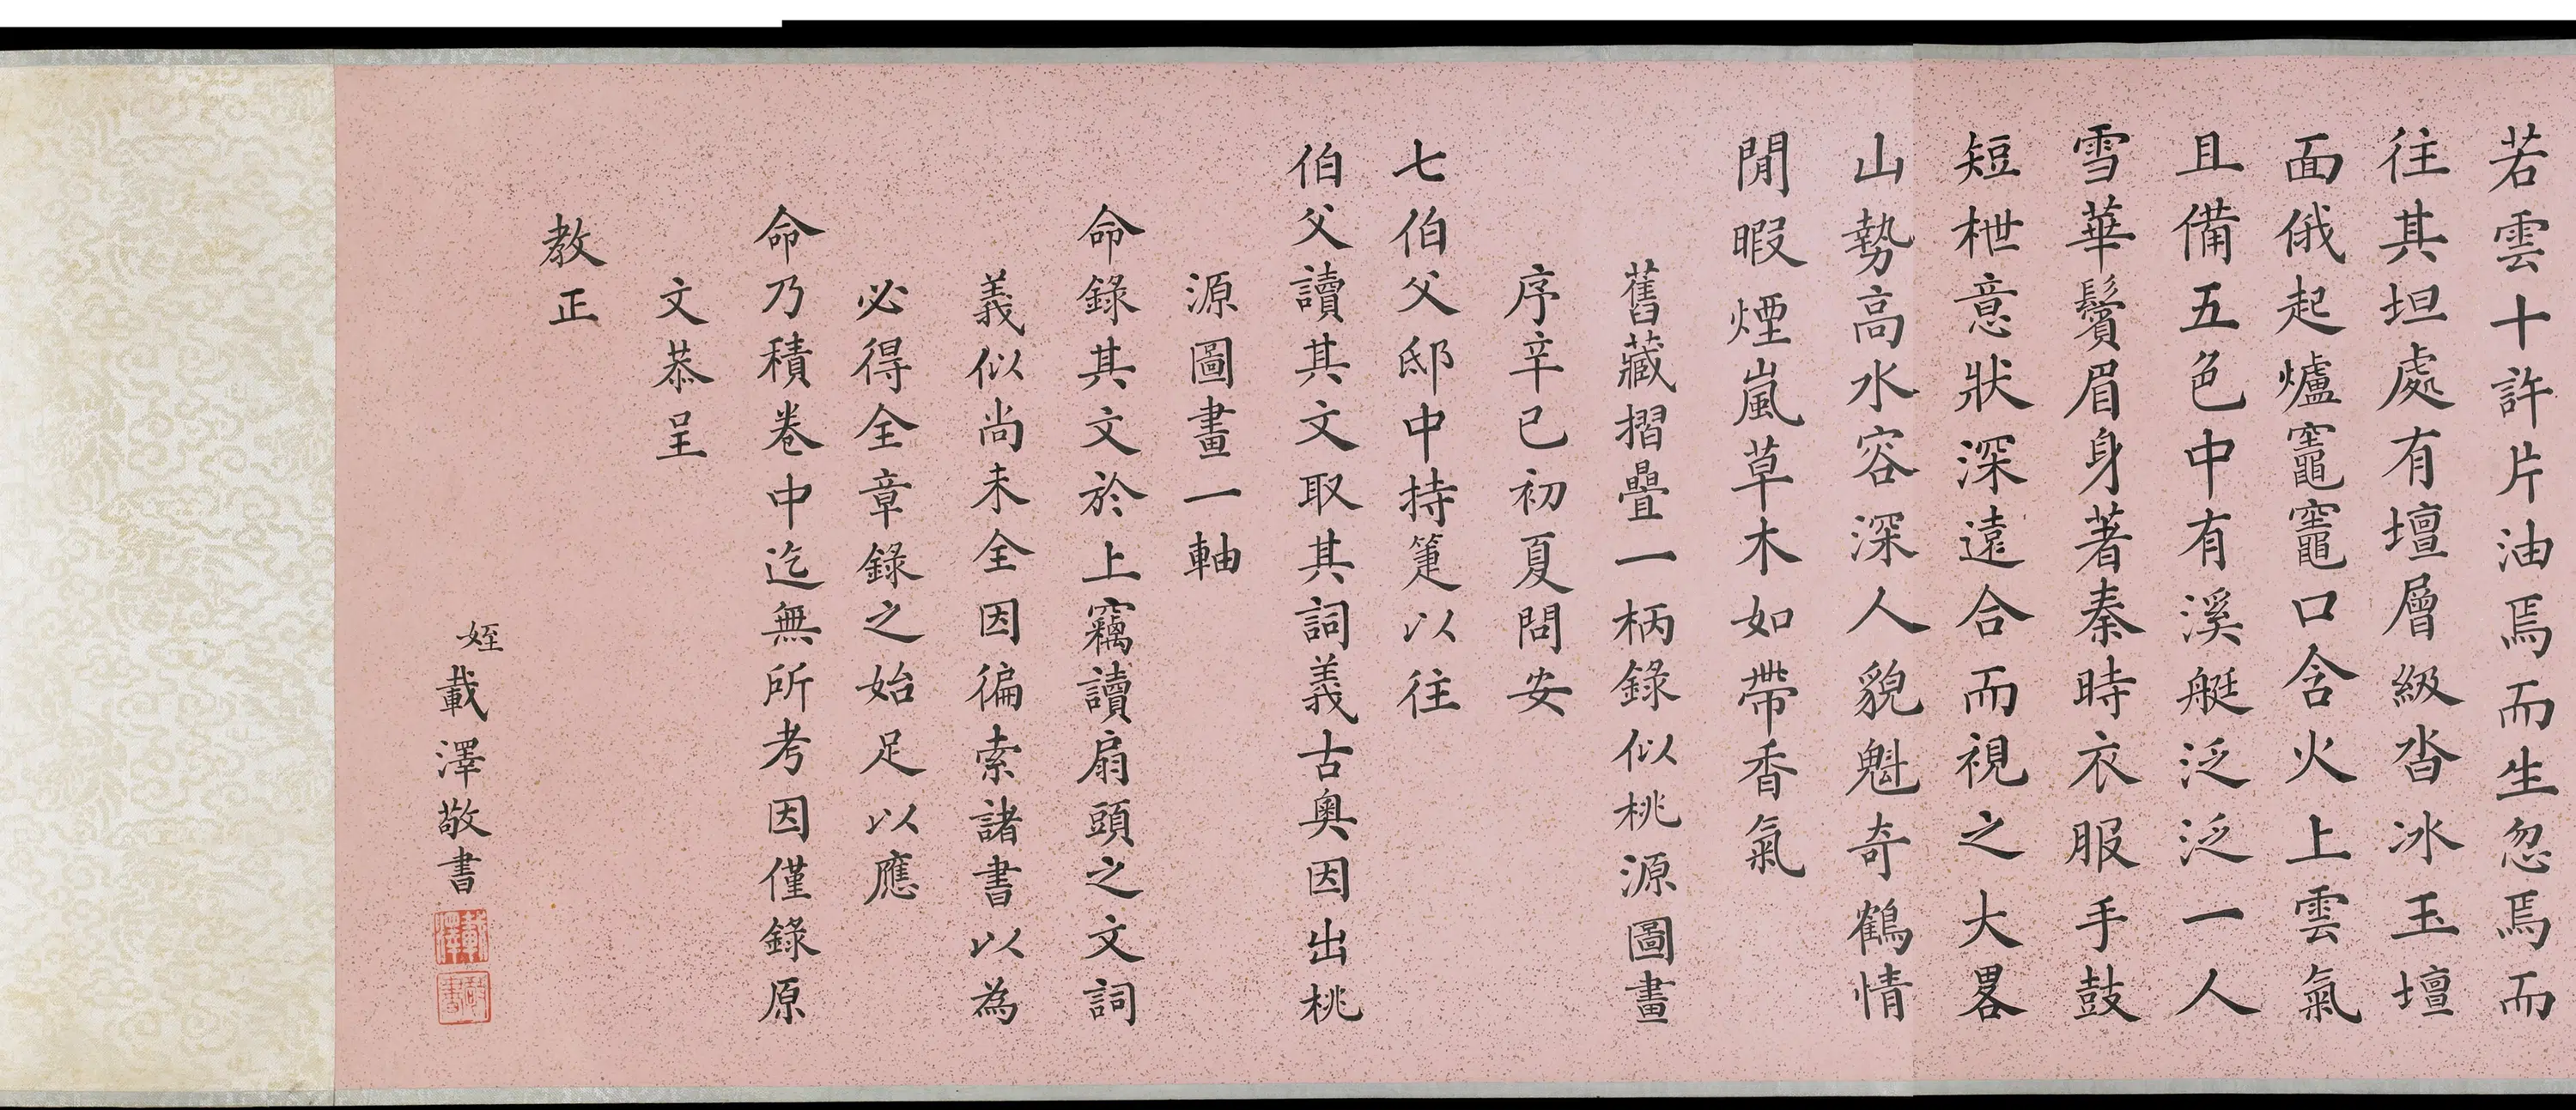 若雲十許片油焉而生忽焉而
往其坦處有壇層級沓冰玉壇
面俄起爐竈竈口含火上雲氣
且備五色中有溪艇泛泛一人
雪華鬢眉身著秦時衣服手鼓
短枻意狀深遠合而視之大畧
山勢高水容深人貌魁奇鶴情
閒暇煙嵐草木如帶香氣
舊藏摺疊一柄錄似桃源圖畫
序辛巳初夏問安
七伯父邸中持箑以往
伯父讀其文取其詞義古奧因出桃
源圖畫一軸
命錄其文於上竊讀扇頭之文詞
義似尚未全因徧索諸書以為
必得全章錄之始足以應
命乃積卷中迄無所考因僅錄原
文恭呈
教正
姪載澤敬書
載澤
敬書